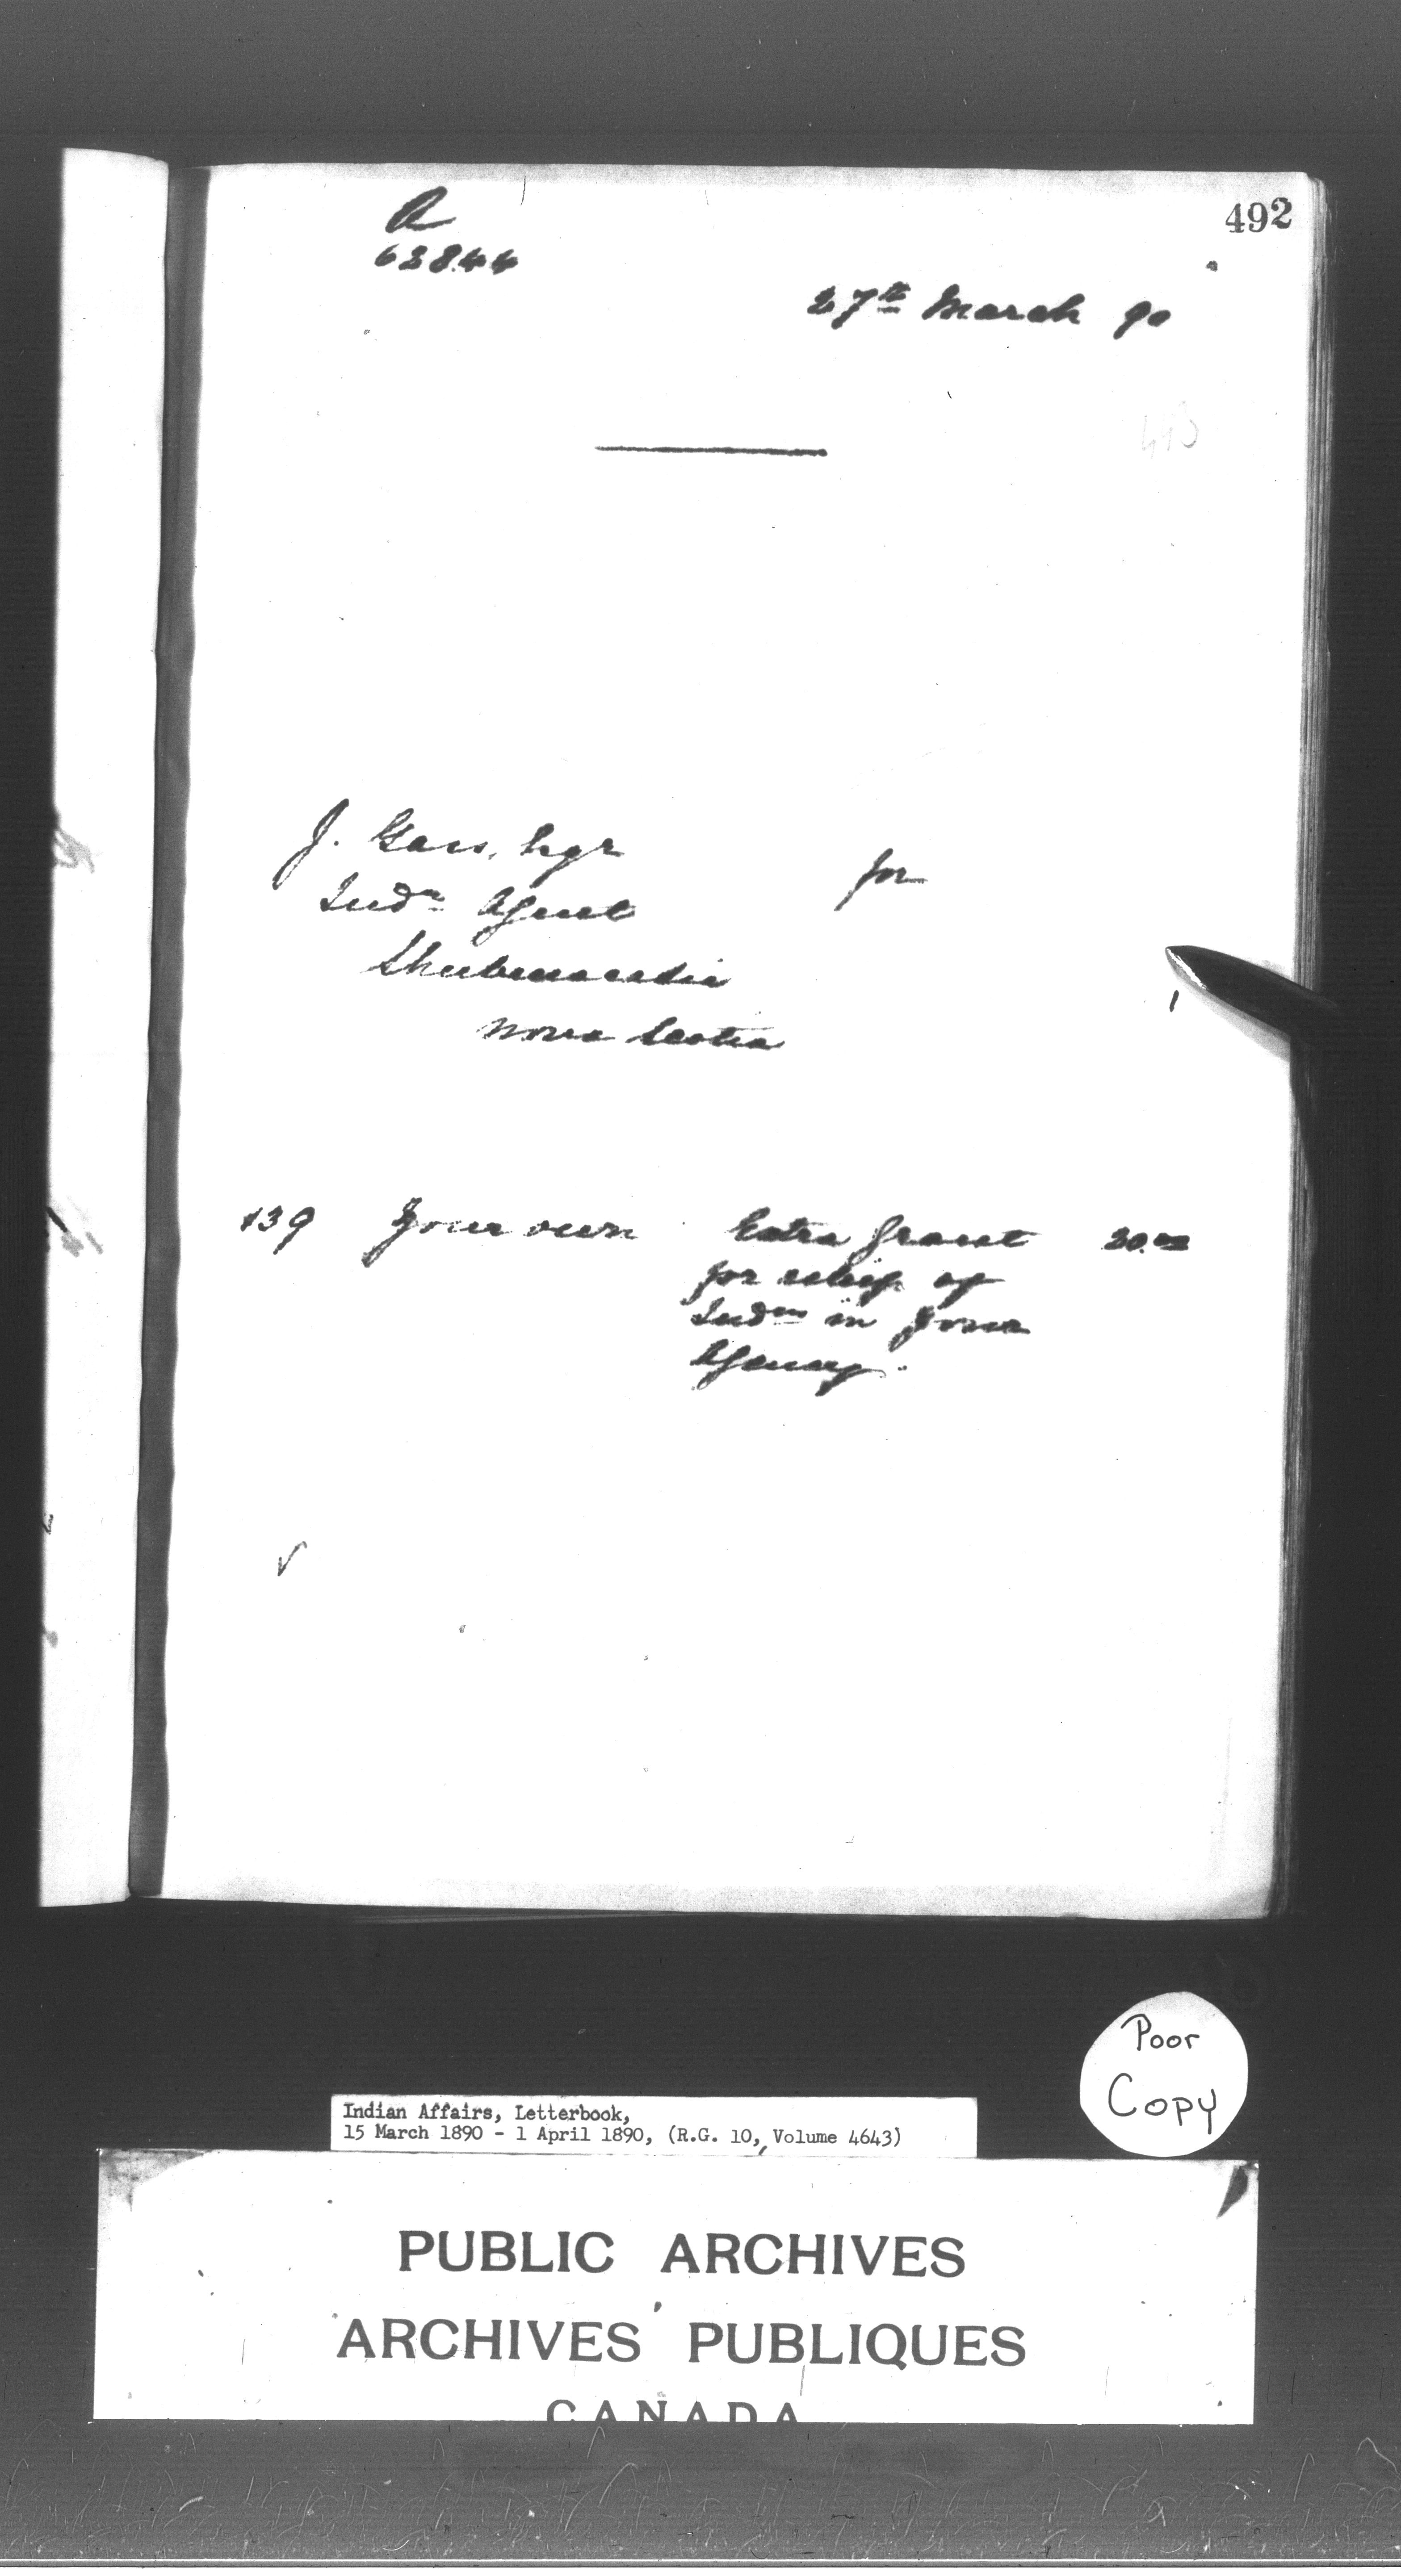 492
A
62844
27th March 90
J. Gass, Esqr
Indn Agent
for
Shubenacadie
Nova Scotia
139 Your own Extra grant 20.00
for relief of
Indns in your
Agency.
Poor
Copy
Indian Affairs, Letterbook,
15 March 1890 - 1 April 1890, (R.G. 10, Volume 4643)
PUBLIC ARCHIVES
ARCHIVES PUBLIQUES
CANADA